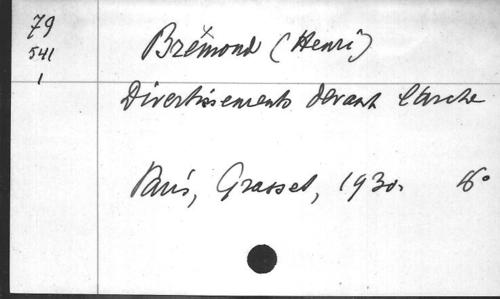 79
541
1
Brémond (Henri)
Divertissements devant l'arche
Paris, Grasset, 1930. 8°